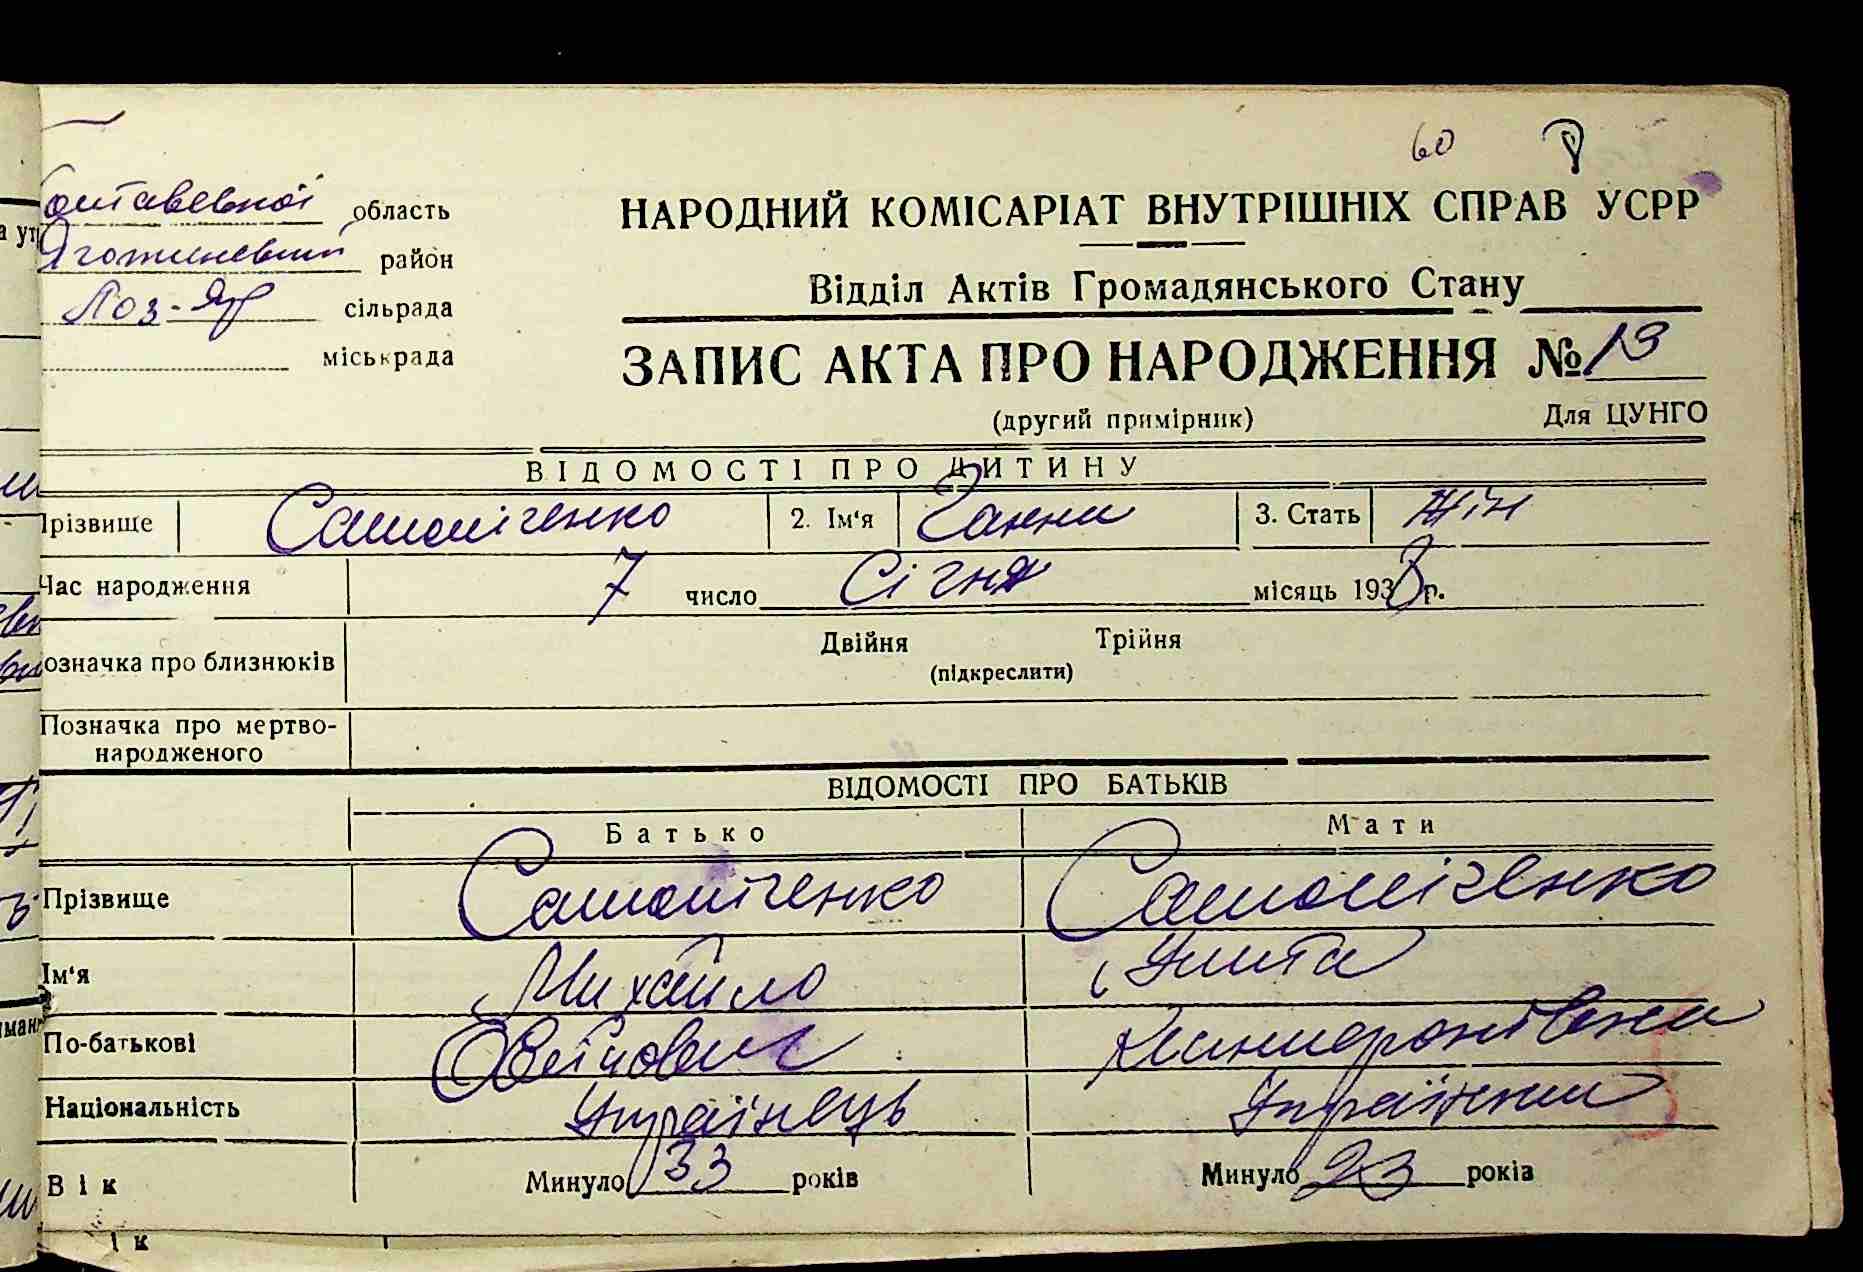 60
область
НАРОДНИЙ КОМІСАРІАТ ВНУТРІШНІХ СПРАВ УСРР
район
Відділ Актів Громадянського Стану
Лоз-Яр сільрада
міськрада
ЗАПИС АКТА ПРО НАРОДЖЕННЯ № 13
(другий примірник) Для ЦУНГО
ВІДОМОСТІ ПРО ДИТИНУ
Прізвище 2. Ім'я Ганна 3. Стать Жін
Час народження 7 число Січня місяць 1938 р.
означка про близнюків Двійня Трійня
(підкреслити)
Позначка про мертво-
народженого
ВІДОМОСТІ ПРО БАТЬКІВ
Батько Мати
Прізвище
Ім'я Михайло Улита
По-батькові
Національність Українець Українка
Вік Минуло 33 років Минуло 23 років
і к